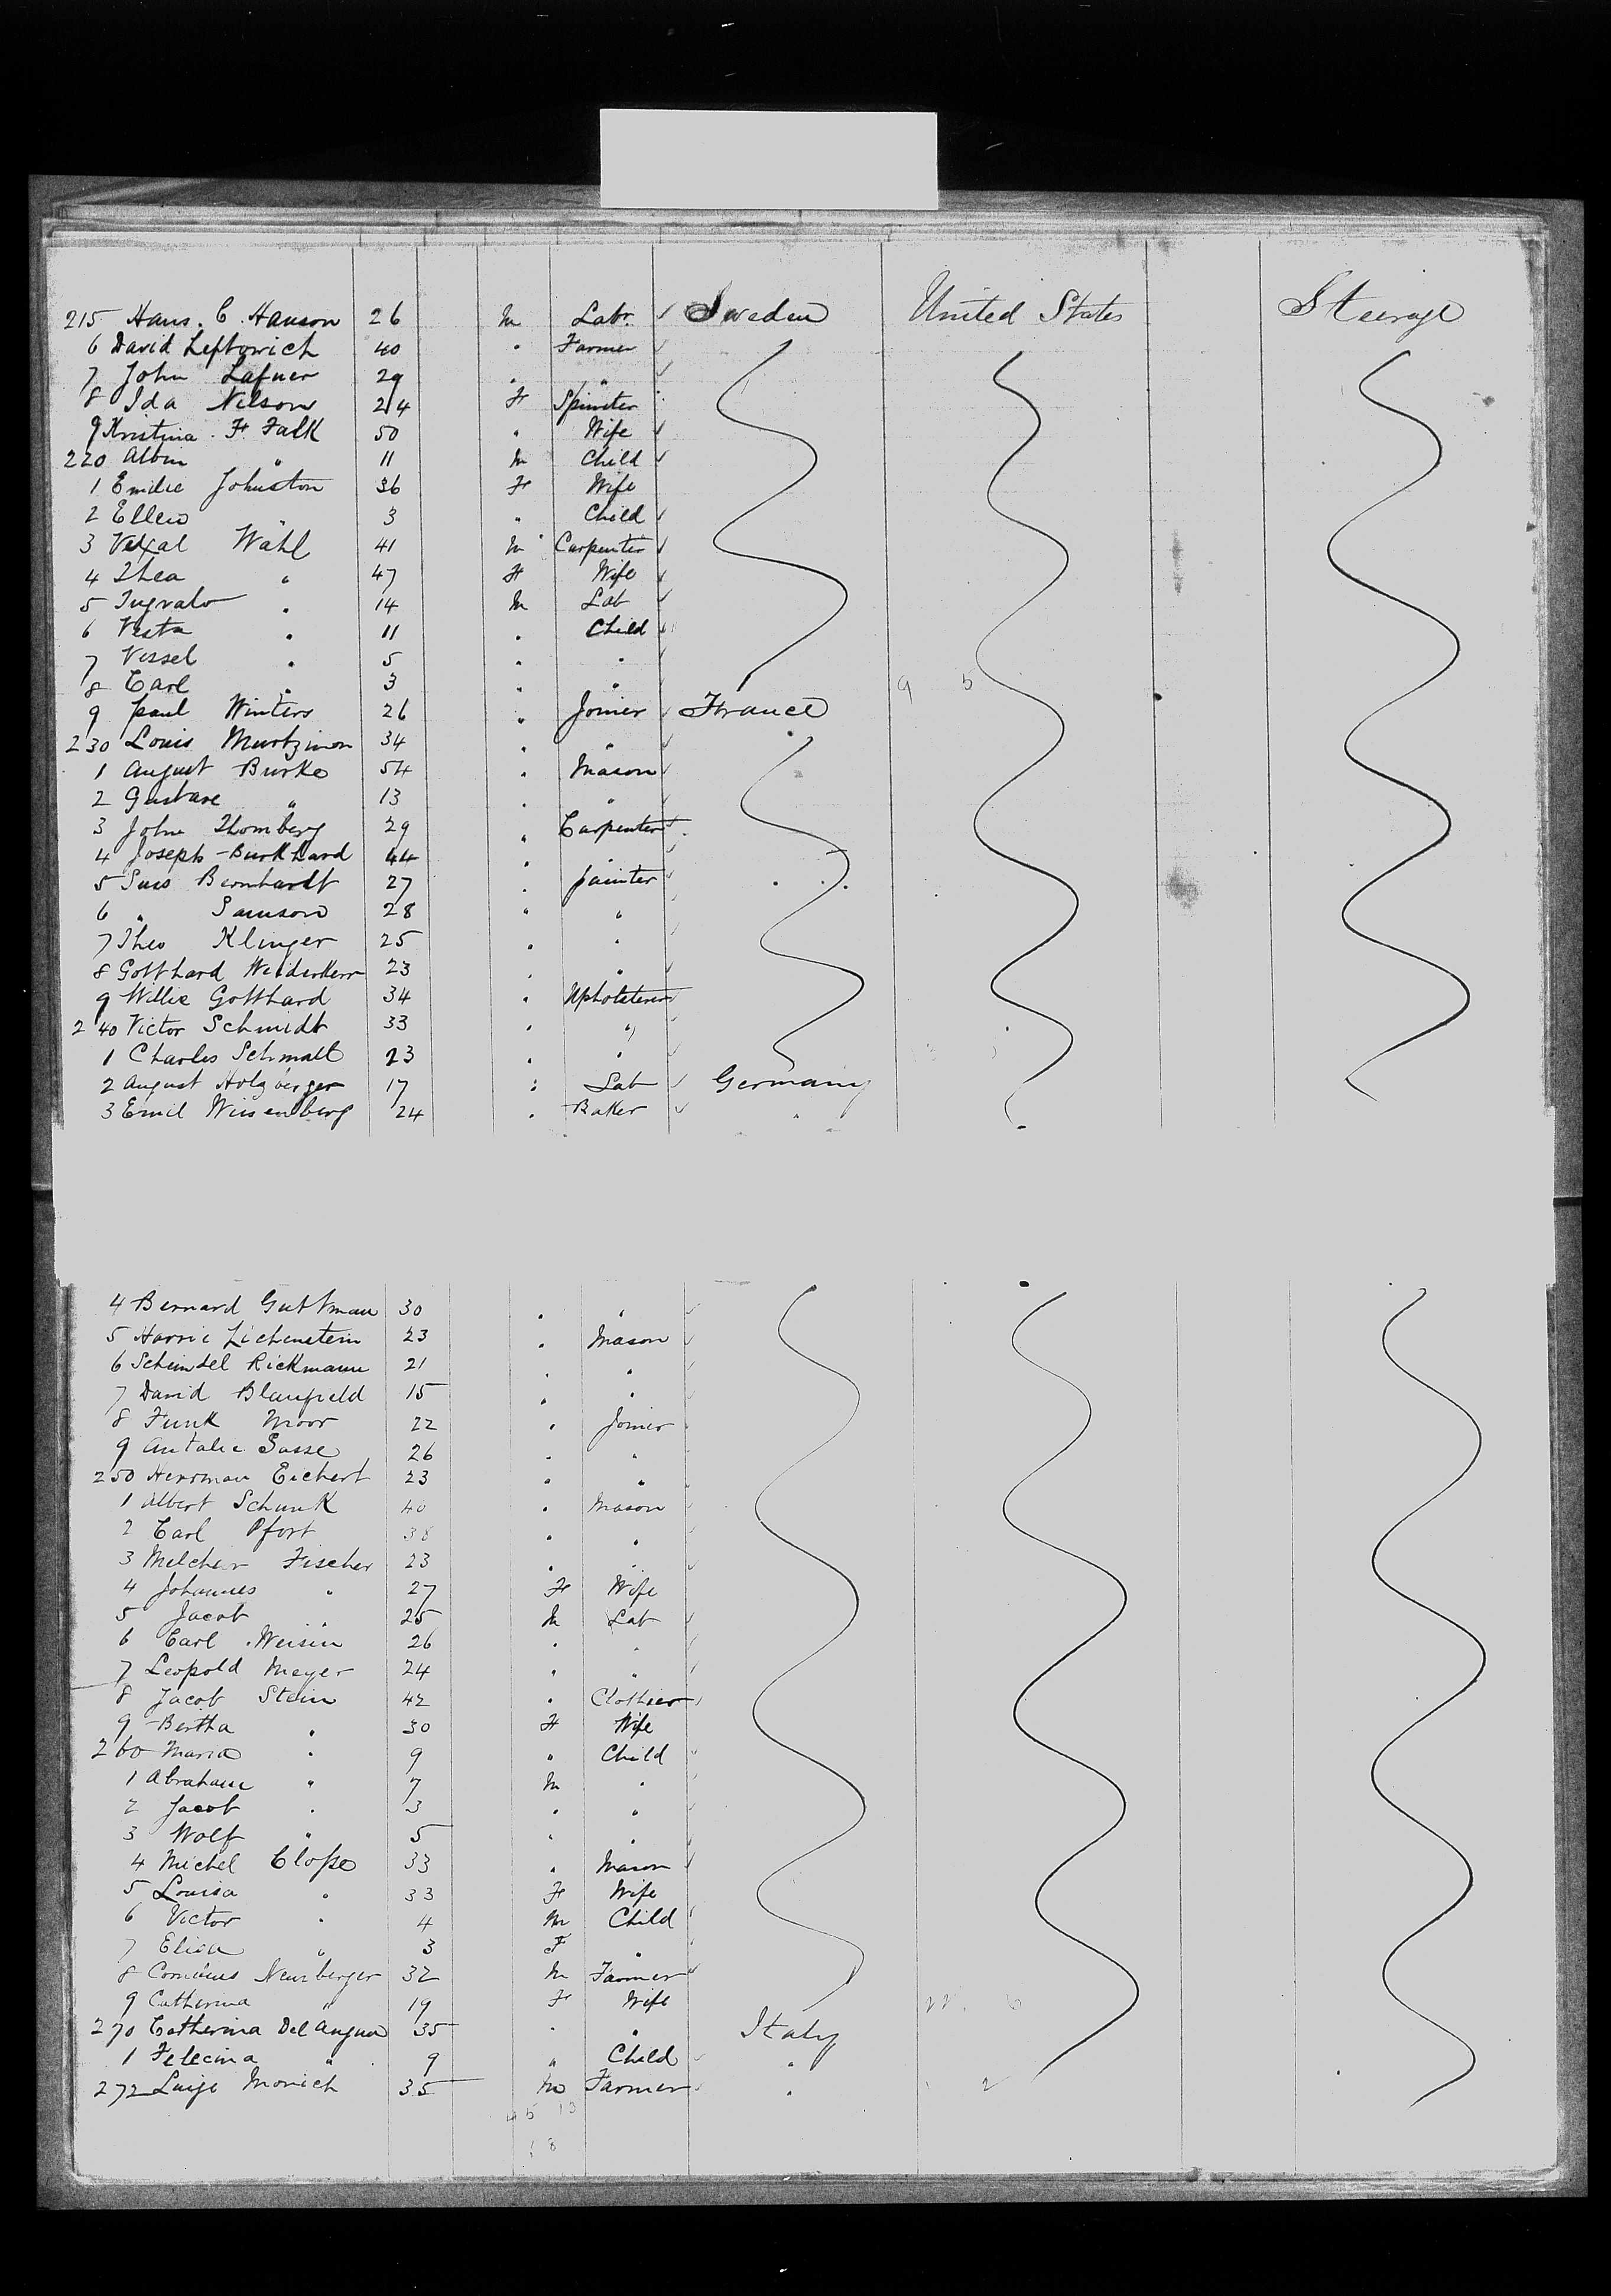 215 Hans. C. Hanson 26 M Labr. Sweden United States Steerage
6 David Leftowich 40 " Farmer
7 John Lafner 29 " "
8 Ida Nelson 24 F Spinster
9 Kristina F. Falk 50 " Wife
220 Albin " 11 M Child
1 Emilie Johnston 36 F Wife
2 Ellen " 3 " Child
3 Wahl 41 M Carpenter
4 Thea " 47 F Wife
5 Ingvald " 14 M Lab
6 Vesta " 11 " Child
7 Vessel " 5 " "
8 Carl " 3 " " 9 5
9 Paul Winters 26 " Joiner France
230 Louis Murtzinon 34 " "
1 August Burke 54 " Mason
2 Gustave " 13 " "
3 John Thomberg 29 " Carpenter
4 Joseph Burkhard 44 " "
5 Bernhardt 27 " Painter
6 " Samson 28 " "
7 Theo Klinger 25 " "
8 Gotthard 23 " "
9 Willie Gotthard 34 " Upholsterer
240 Victor Schmidt 33 " "
1 Charles Schmalt 23 " "
2 August Holzberger 17 " Lab Germany
3 Emil Wiesenberg 24 " Baker "
4 Bernard Guttman 30 " "
5 Harrie Lichenstein 23 " Mason
6 Scheindel Rickmann 21 " "
7 David Blaufield 15 " "
8 Funk Moor 22 " Joiner
9 Antalie Sasse 26 " "
250 Herrman Eichert 23 " "
1 Albert Schunk 40 " Mason
2 Carl Pfort 38 " "
3 Melchior Fischer 23 " "
4 Johannes " 27 F Wife
5 Jacob " 25 M Lab
6 Carl Weisin 26 " "
7 Leopold Meyer 24 " "
8 Jacob Stein 42 " Clothier
9 Bertha " 30 F Wife
260 Maria " 9 " Child
1 Abraham " 7 M "
2 Jacob " 3 " "
3 Wolf " 5 " "
4 Michel Closse 33 " Mason
5 Louisa " 33 F Wife
6 Victor " 4 M Child
7 Elisa " 3 F "
8 Cornelius Neuberger 32 M Farmer
9 Catherina " 19 F Wife
270 Catherina Del Angua 35 " " Italy
1 Felecina " 9 " Child "
272 Luigi Monich 35 M Farmer " 2